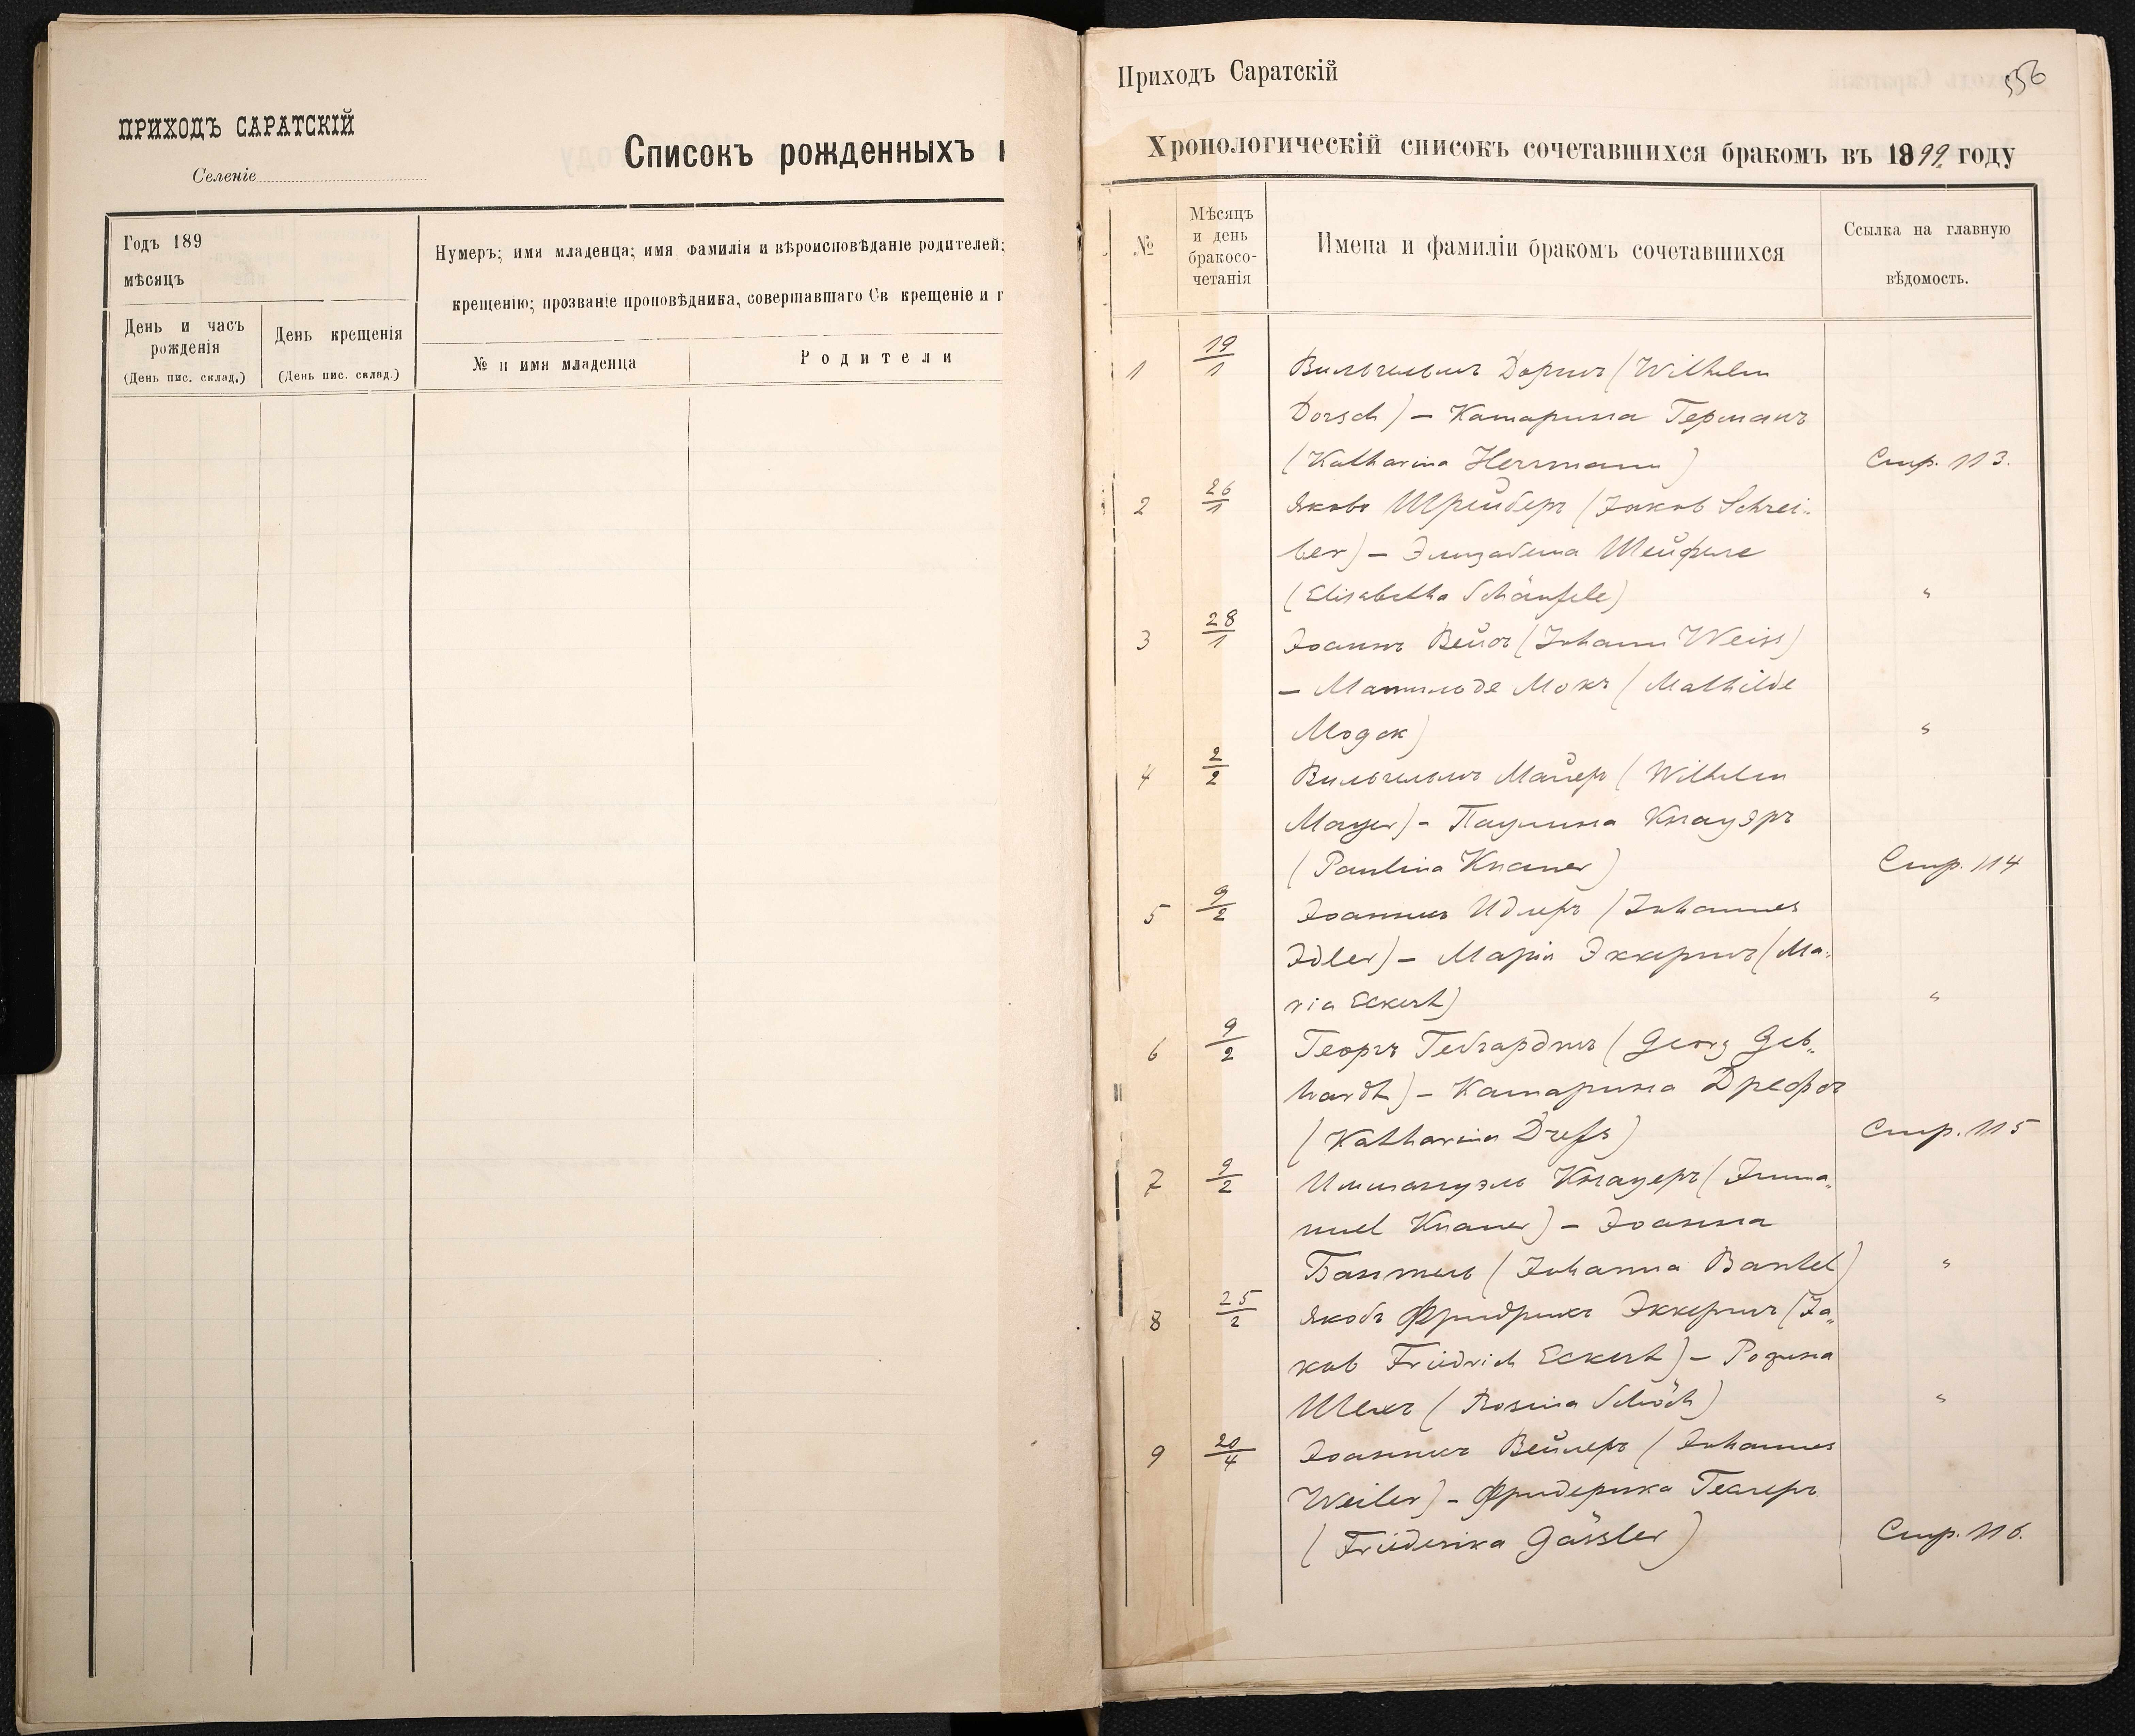 ПРИХОДЪ САРАТСКІЙ
Селеніе
Списокъ рожденныхъ
Годъ 189
мѣсяцъ
День и часъ рожденія
(День пис. склад.)
День крещенія
(День пис. склад.)
Нумеръ; имя младенца; имя фамилія и вѣроисповѣданіе родителей;
крещенію; прозваніе проповѣдника, совершавшаго Св крещеніе и
№ и имя младенца
Родители
Приходъ Саратскій
356
Хронологическій списокъ сочетавшихся бракомъ въ 1899 году
№
Мѣсяцъ
и день
бракосо-
четанія
Имена и фамиліи бракомъ сочетавшихся
Ссылка на главную
вѣдомость.
1 19/1 Вильгельмъ Доршъ (Wilhelm
Dorsch) – Катарина Германъ
(Katharina Herrmann) Стр. 113.
2 26/1 Яковъ Шрейберъ (Jakob Schrei-
ber) – Элизабета Шейфеле
(Elisabetha Schäufele) "
3 28/1 Іоаннъ Вейсъ (Johann Weiss)
– Матильде Мокъ (Mathilde
"
4 2/2 Вильгельмъ Майеръ (Wilhelm
Mayer) – Паулина Кнауэръ
(Paulina Knauer) Стр. 114
5 9/2 Іоаннесъ Идлеръ (Johannes
Idler) – Марія Эккертъ (Ma-
ria Eckert) "
6 9/2 Георгъ Гебгардтъ (Georg Geb-
hardt) – Катарина Дрефсъ
(Katharina Drefs) Стр. 115
7 9/2 Иммануэль Кнауеръ (Imma-
nuel Knauer) – Іоанна
Бантель (Johanna Bantel) "
8 25/2 Якобъ Фридрихъ Эккертъ (Ja-
kob Friedrich Eckert) – Розина
Шехъ (Rosina Schöch) "
9 20/4 Іоаннесъ Вейлеръ (Johannes
Weiler) – Фридерика Геслеръ
(Friederika Gässler) Стр. 116.